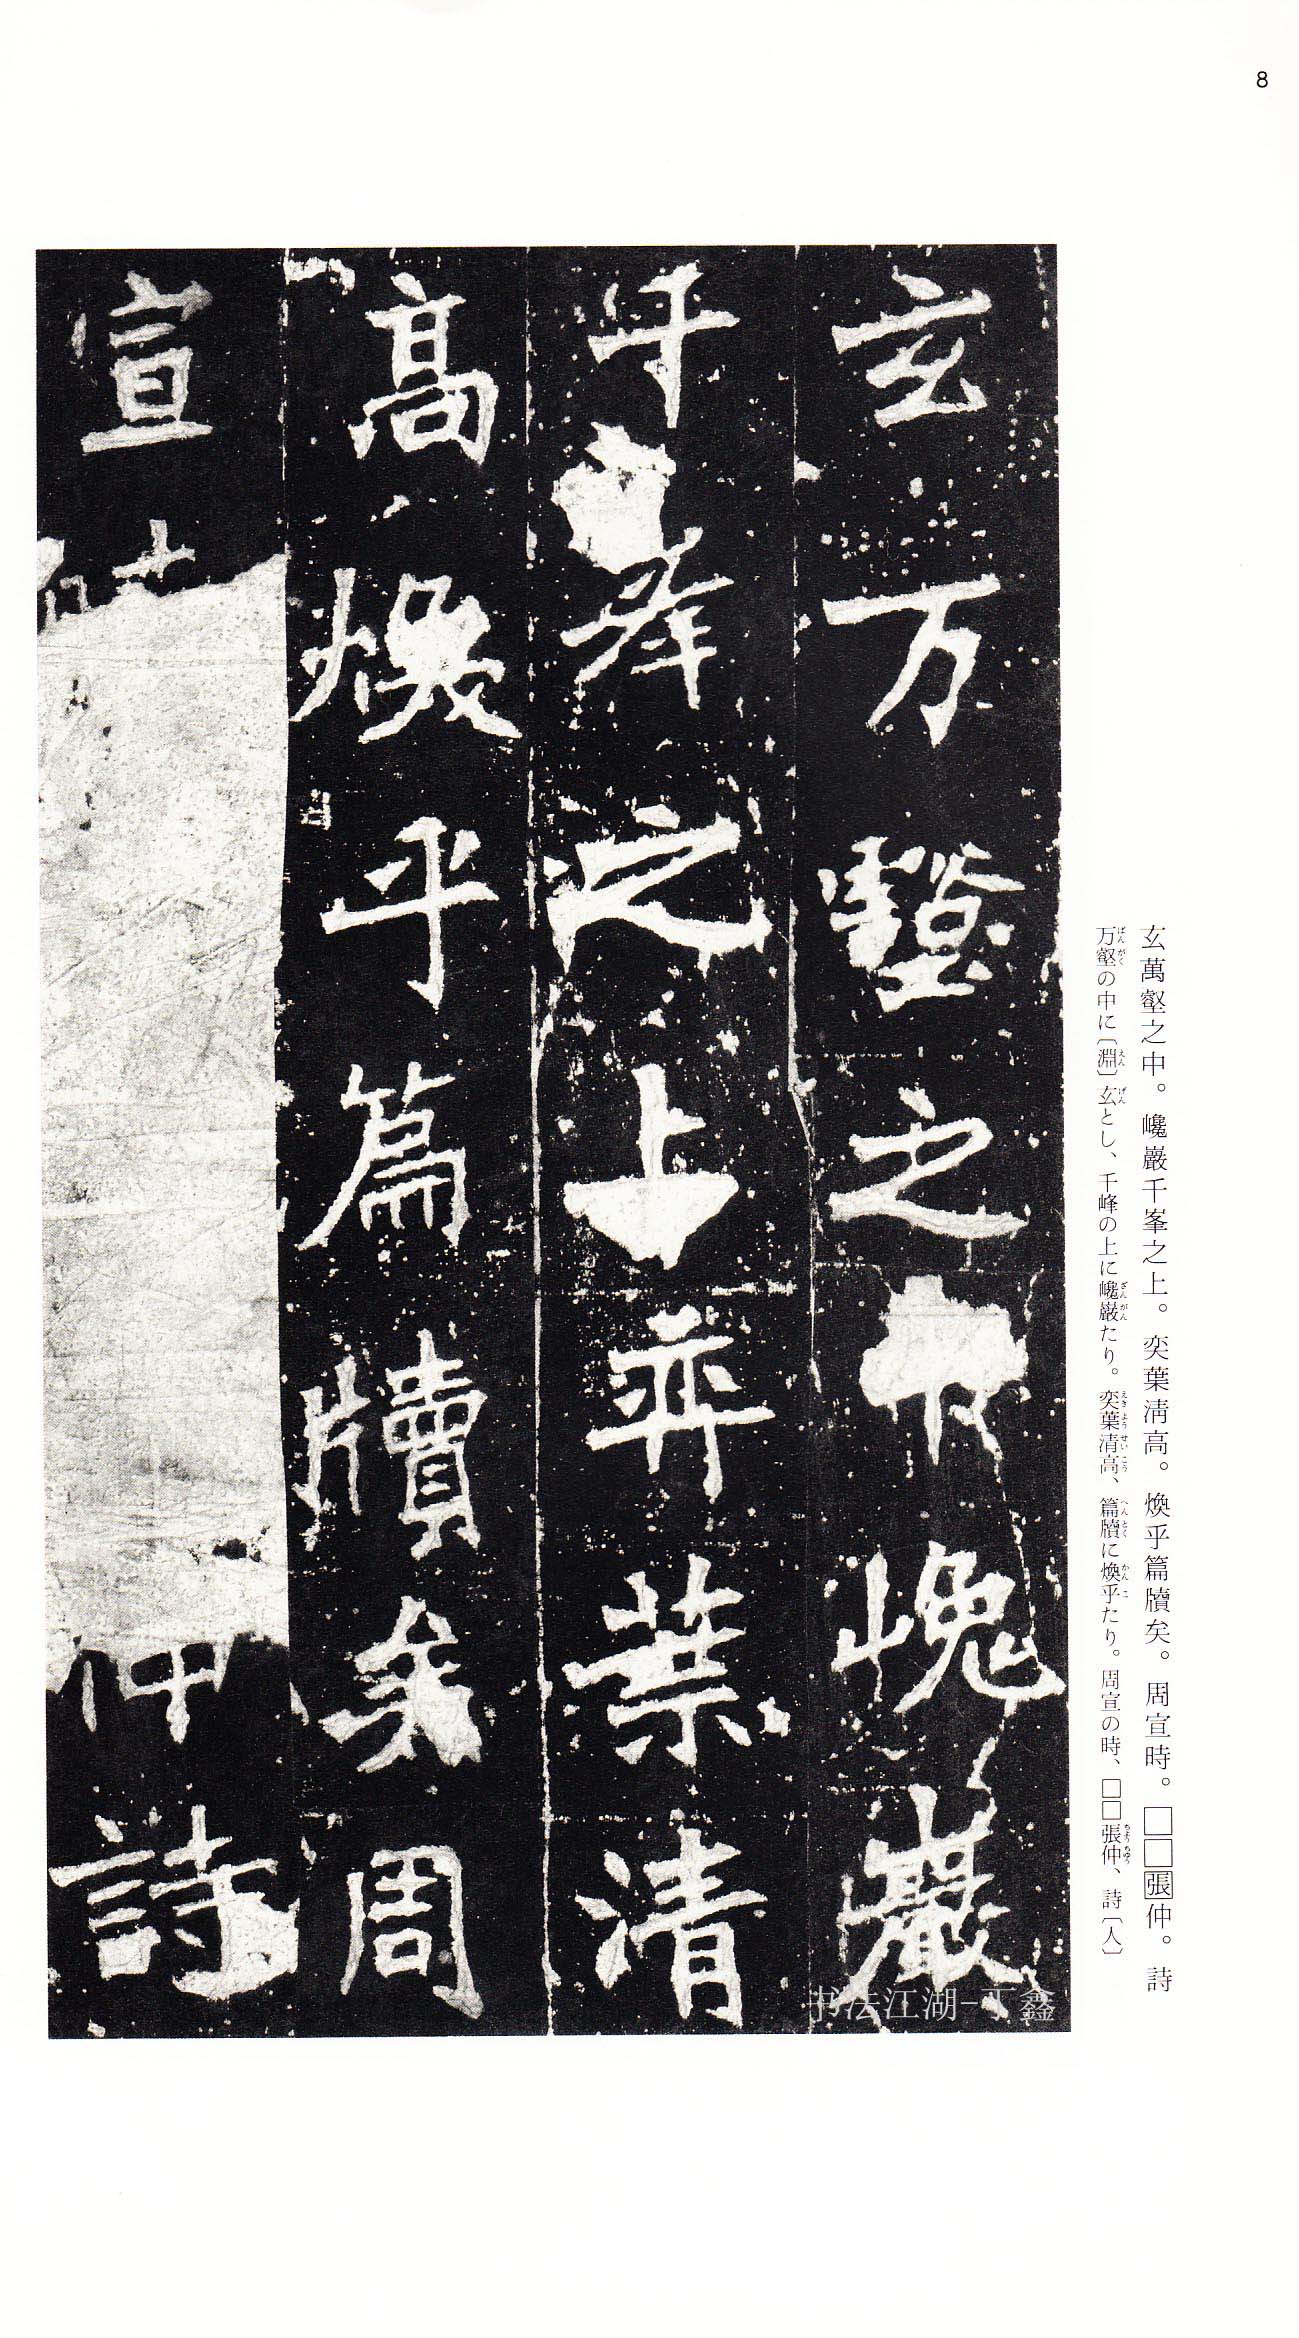 8
玄萬壑之中。巉巖千峯之上。奕葉淸高。煥乎篇牘矣。周宣時。□□張仲。詩
万壑の中に〔淵〕玄とし、千峰の上に巉巌たり。奕葉清高、篇牘に煥乎たり。周宣の時、□□張仲、詩〔人〕
玄万壑之中巉巖
千峯之上弈葉清
高煥乎篇牘矣周
宣時仲詩
书法江湖-丁鑫